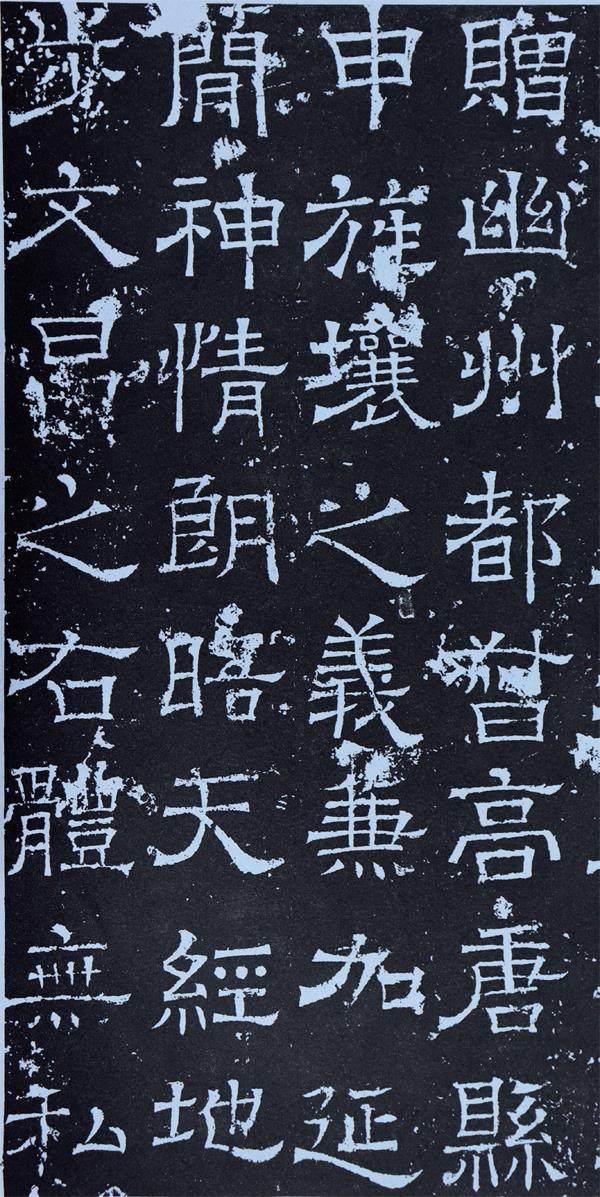 贈幽州都督高唐縣
申旌壤之義兼加延
閒神情朗晤天經地
步文昌之右體無私